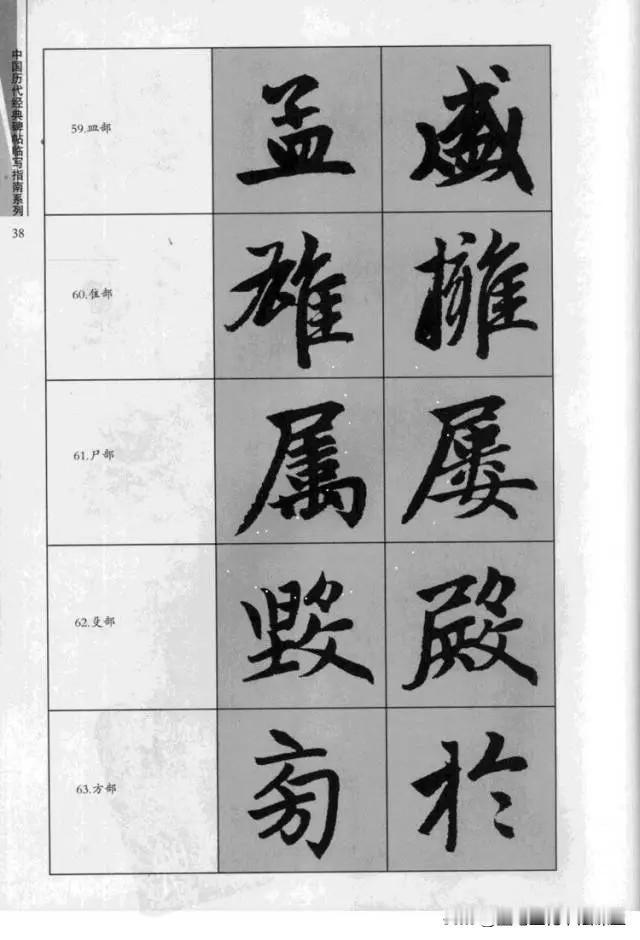 中国历代经典碑帖临写指南系列
38
59.皿部
孟 盛
60.隹部
雄 擁
61.尸部
属 屡
62.殳部
毁 殿
63.方部
於